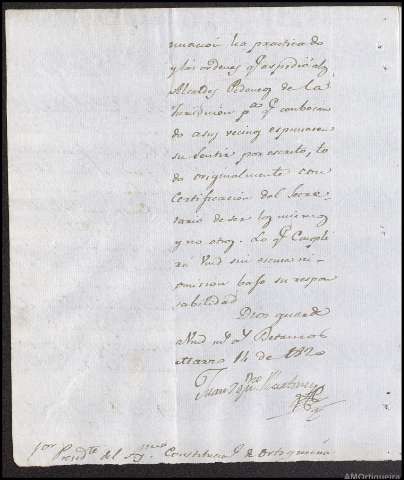 nuacion ha practicado
y las ordenes q.e espidió a los
Alcaldes Pedaneos de la
Jurisdicion p.a q.e conbocan
do a sus vecinos espusiesen
su sentir por escrito, to
do originalmente con
Certificacion del Secre
tario de ser los mismos
y no otros. Lo q.e Cumpli
rá Vmd sin escusa ni
omision bajo su respon
sabilidad
Dios guarde
a Vmd m.s a.s Betanzos
Marzo 14 de 1820
Juan
Presid.te del Constitucion.l de Ortigueira
AMOrtigueira